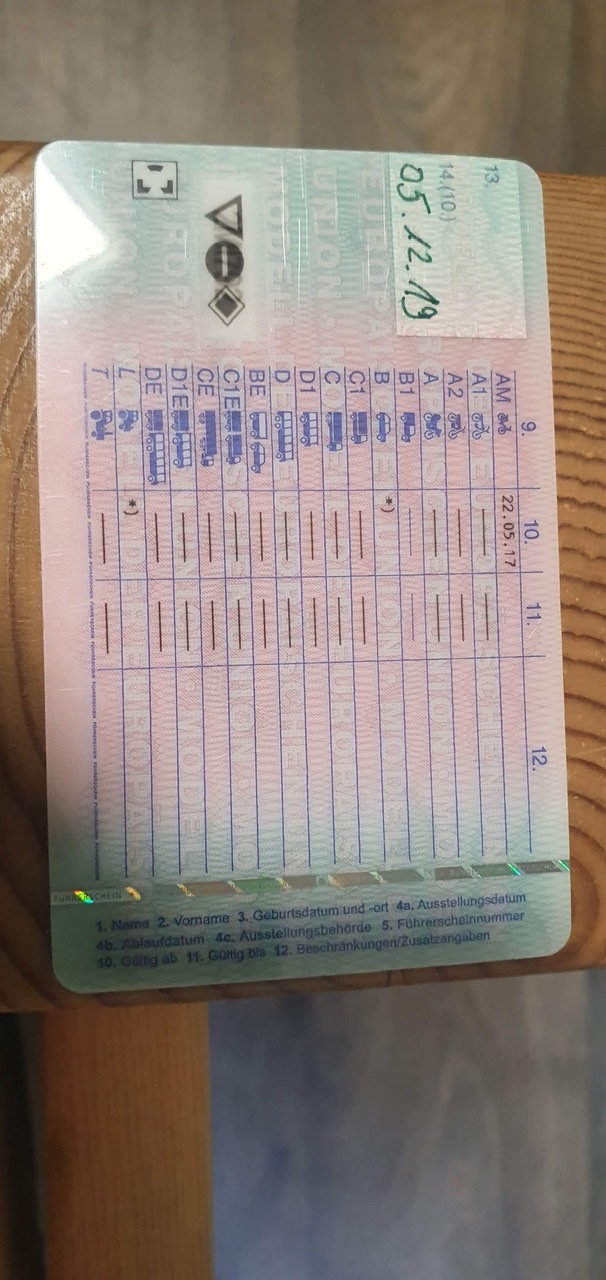 13.
14.(10.)
05.12.19
9. 10. 11. 12.
AM 22.05.17
A1 — —
A2 — —
A — —
B1 — —
B *)
C1 — —
C — —
D1 — —
D — —
BE — —
C1E — —
CE — —
D1E — —
DE — —
L *)
T — —
FÜHRERSCHEIN
1. Name 2. Vorname 3. Geburtsdatum und -ort 4a. Ausstellungsdatum
4b. Ablaufdatum 4c. Ausstellungsbehörde 5. Führerscheinnummer
10. Gültig ab 11. Gültig bis 12. Beschränkungen/Zusatzangaben